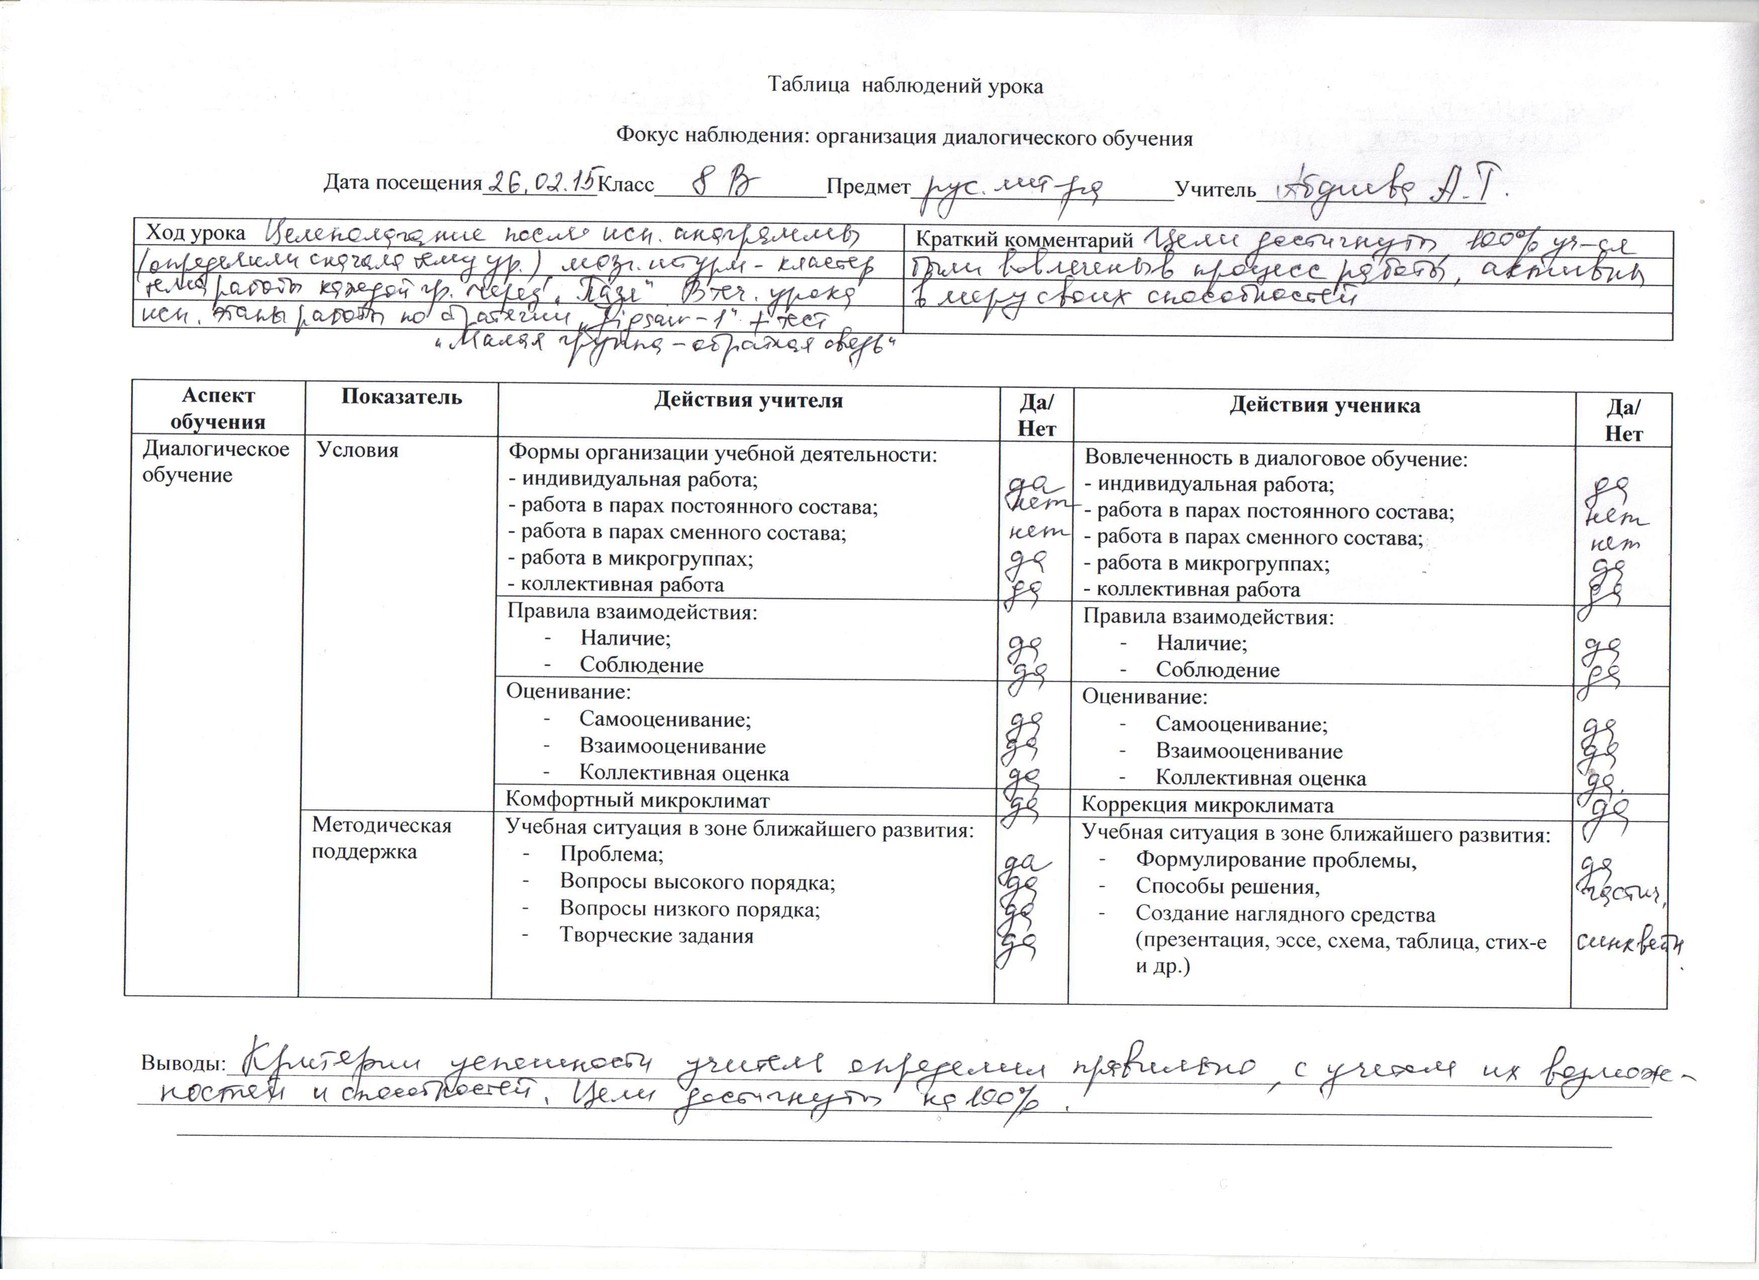 Таблица наблюдений урока
Фокус наблюдения: организация диалогического обучения
Дата посещения 26.02.15 Класс 8 В Предмет рус. лит-ра Учитель А.Т.
Ход урока Целеполагание после исп. анаграммы
(определили сначала тему ур.) мозг. штурм - кластер
работы каждой гр. через "Пазл" В теч. урока
исп. этапы работы по стратегии "Jigsaw-1" + тест
"Малая группа - обратная связь"
Краткий комментарий Цели достигнуты 100% уч-ся
были вовлечены в процесс работы, активны
в меру своих способностей
Аспект обучения Показатель Действия учителя Да/Нет Действия ученика Да/Нет
Диалогическое обучение
Условия
Формы организации учебной деятельности:
- индивидуальная работа; да
- работа в парах постоянного состава; нет
- работа в парах сменного состава; нет
- работа в микрогруппах; да
- коллективная работа да
Вовлеченность в диалоговое обучение:
- индивидуальная работа; да
- работа в парах постоянного состава; нет
- работа в парах сменного состава; нет
- работа в микрогруппах; да
- коллективная работа да
Правила взаимодействия:
- Наличие; да
- Соблюдение да
Правила взаимодействия:
- Наличие; да
- Соблюдение да
Оценивание:
- Самооценивание; да
- Взаимооценивание да
- Коллективная оценка да
Оценивание:
- Самооценивание; да
- Взаимооценивание да
- Коллективная оценка да.
Комфортный микроклимат да
Коррекция микроклимата да
Методическая поддержка
Учебная ситуация в зоне ближайшего развития:
- Проблема; да
- Вопросы высокого порядка; да
- Вопросы низкого порядка; да
- Творческие задания да
Учебная ситуация в зоне ближайшего развития:
- Формулирование проблемы, да
- Способы решения, частич.
- Создание наглядного средства
(презентация, эссе, схема, таблица, стих-е синквейн.
и др.)
Выводы: Критерии успешности учитель определил правильно, с учетом их возмож-
ностей и способностей. Цели достигнуты на 100%.